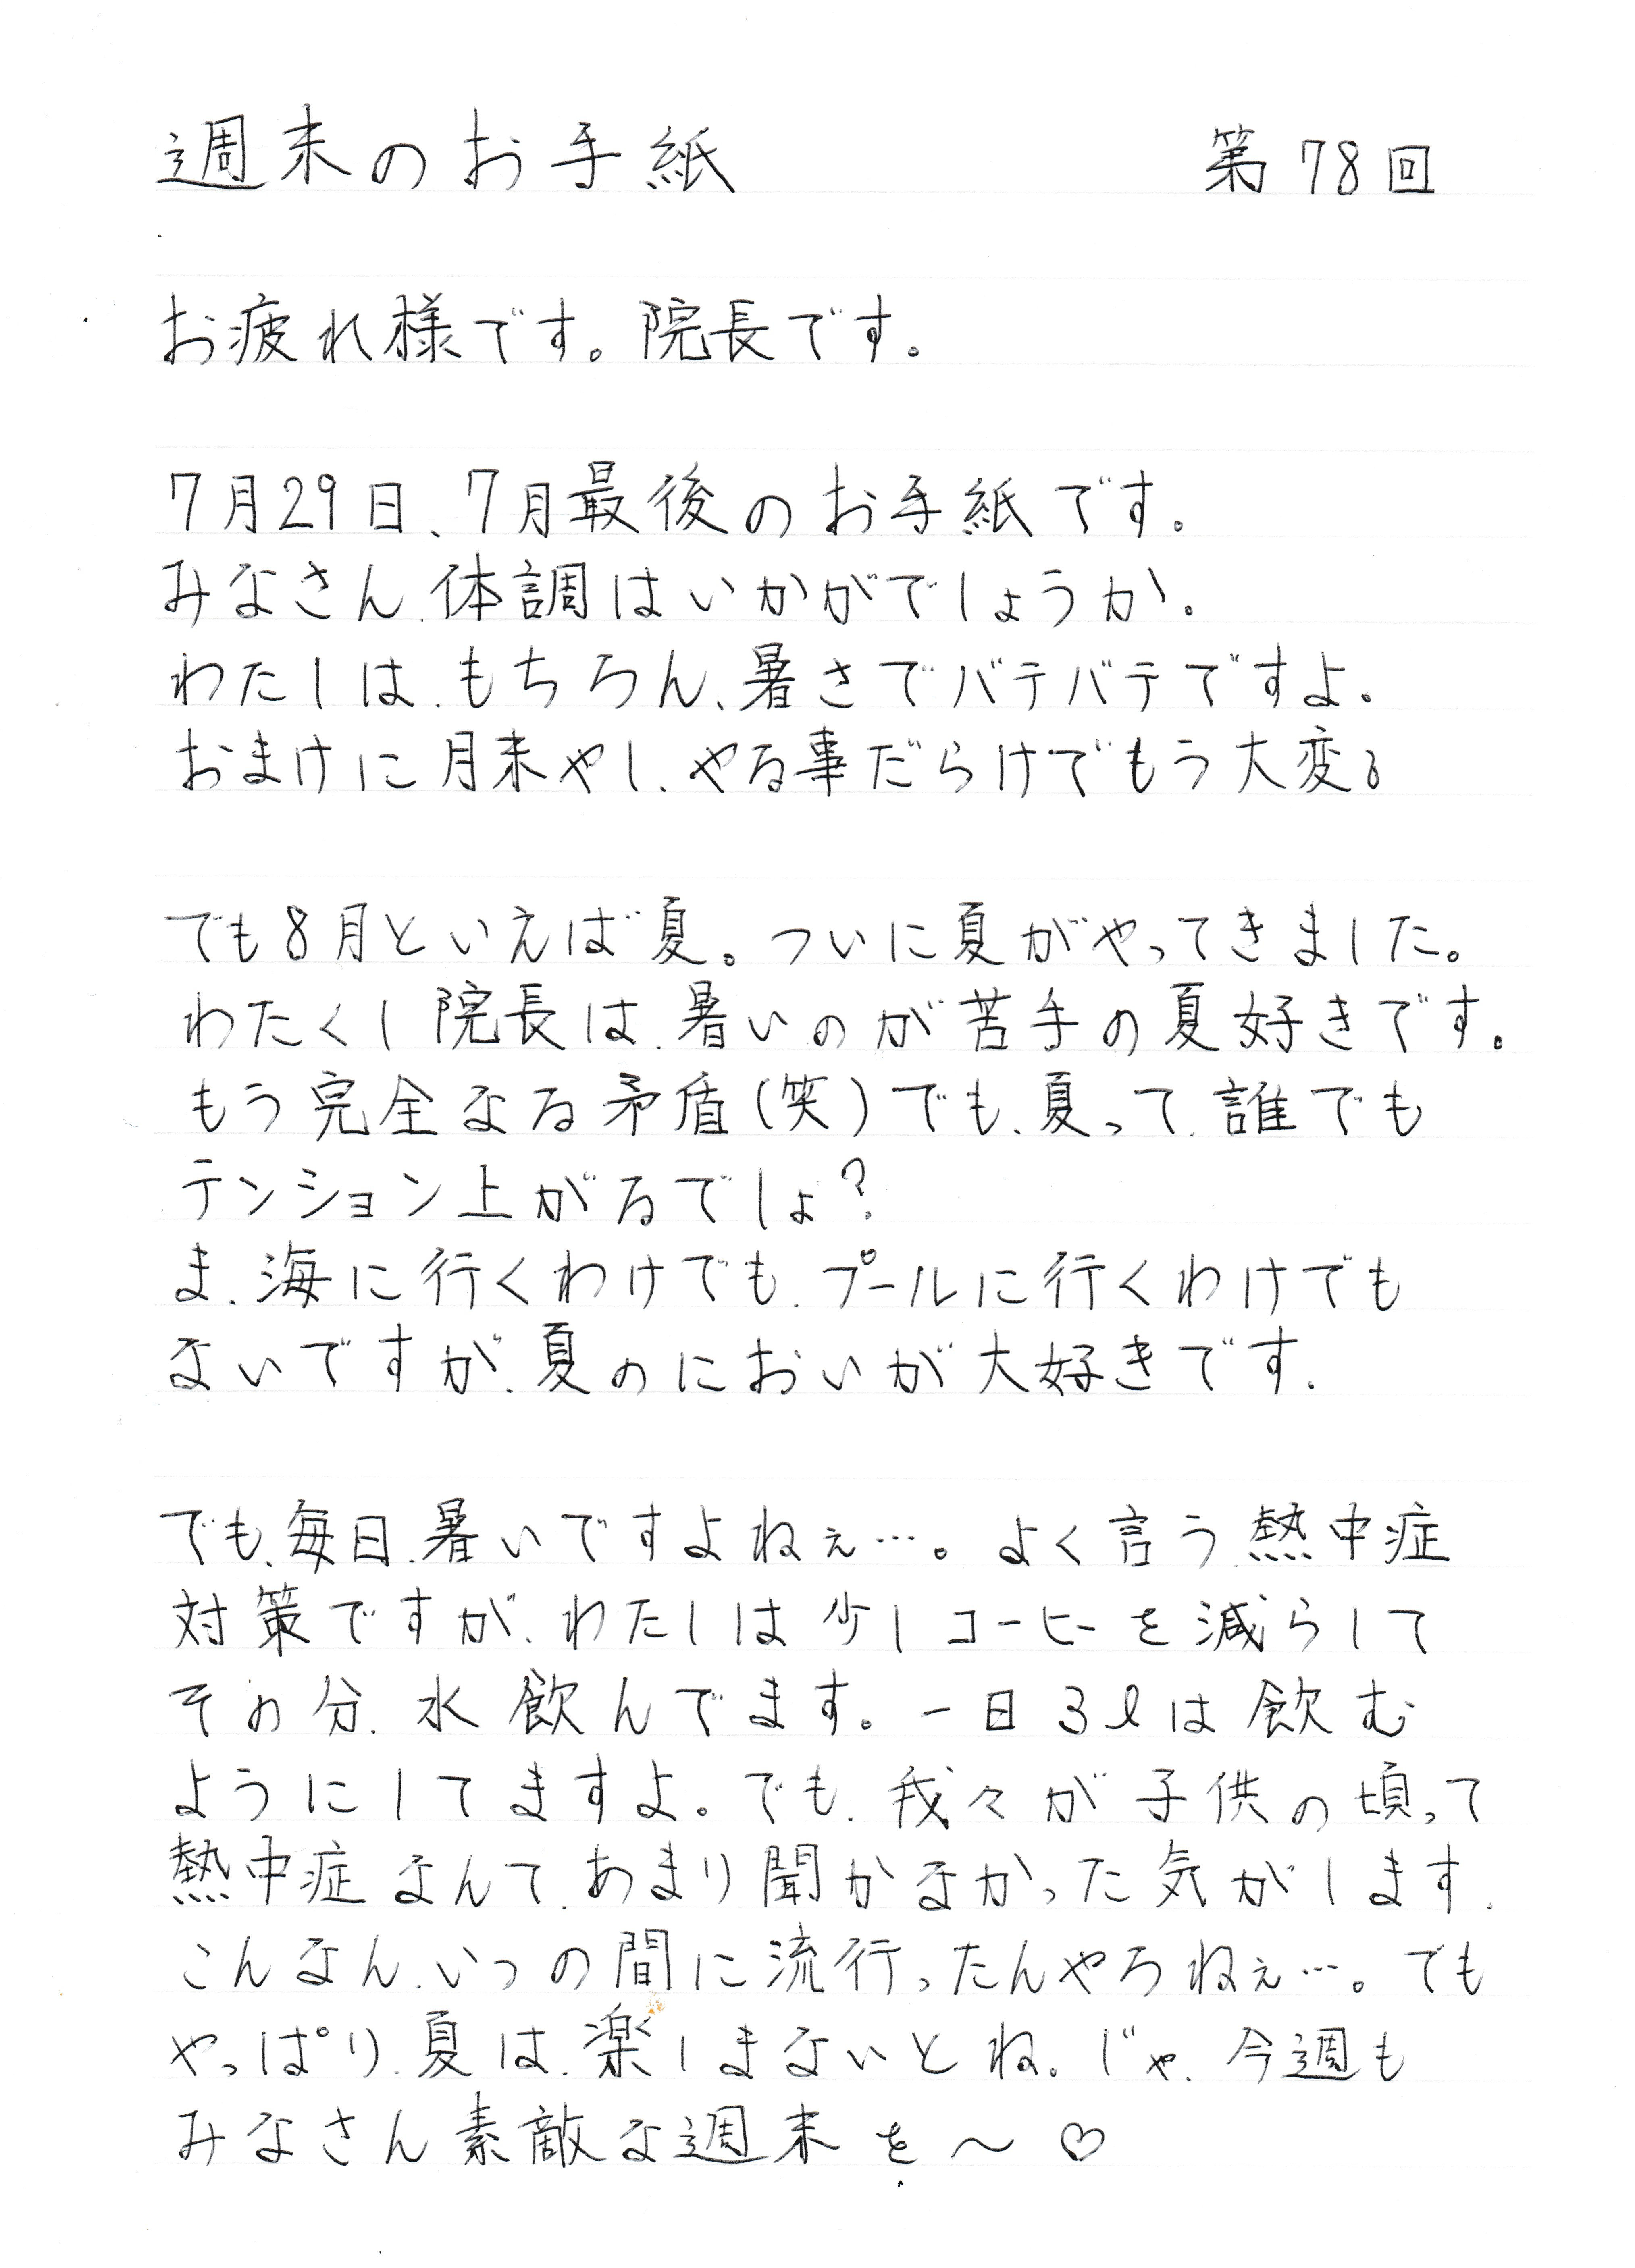 週末のお手紙 第78回
お疲れ様です。院長です。
7月29日、7月最後のお手紙です。
みなさん、体調はいかがでしょうか。
わたしは、もちろん、暑さでバテバテですよ。
おまけに月末やし、やる事だらけでもう大変。
でも8月といえば夏。ついに夏がやってきました。
わたくし院長は、暑いのが苦手の夏好きです。
もう完全なる矛盾(笑)でも、夏って、誰でも
テンション上がるでしょ?
ま、海に行くわけでも、プールに行くわけでも
ないですが、夏のにおいが大好きです。
でも、毎日、暑いですよねぇ…。よく言う、熱中症
対策ですが、わたしは少しコーヒーを減らして
その分、水飲んでます。一日3ℓは飲む
ようにしてますよ。でも、我々が子供の頃って
熱中症なんて、あまり聞かなかった気がします。
こんなん、いつの間に流行ったんやろねぇ…。でも
やっぱり、夏は、楽しまないとね。じゃ、今週も
みなさん素敵な週末を〜♡